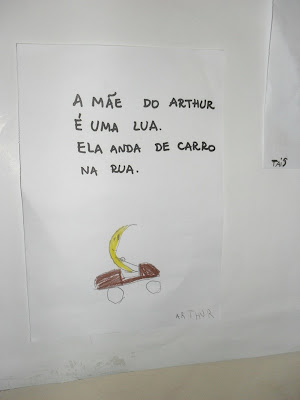 A MÃE DO ARTHUR
É UMA LUA.
ELA ANDA DE CARRO
NA RUA.
TAÍS
ARTHUR